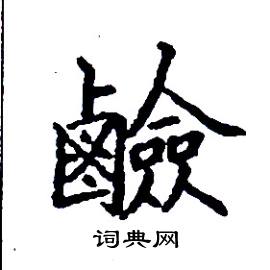 鹼
词典网